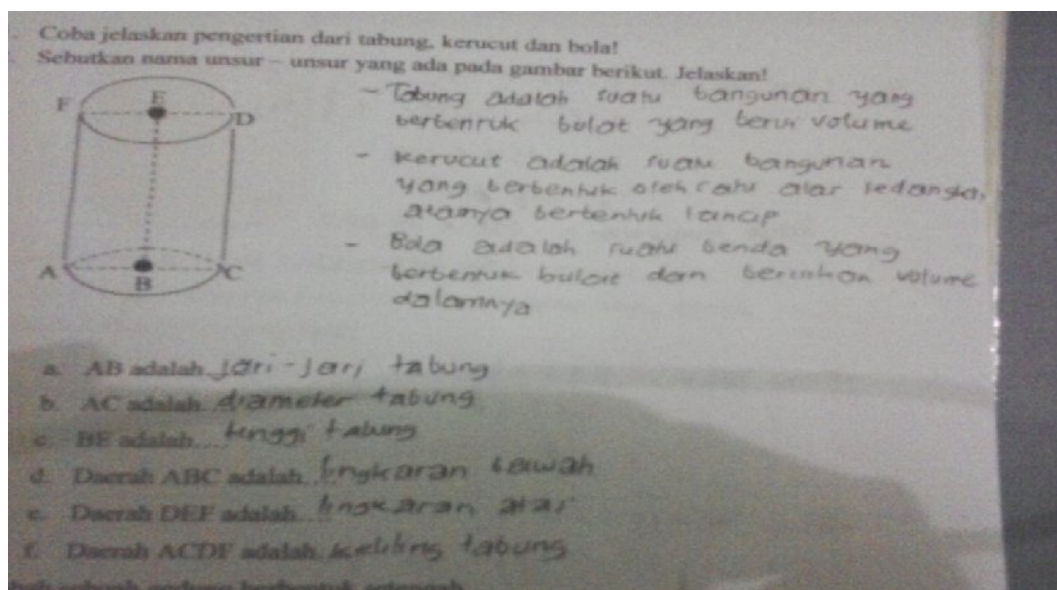 Coba jelaskan pengertian dari tabung, kerucut dan bola!
Sebutkan nama unsur – unsur yang ada pada gambar berikut. Jelaskan!
F E D
A B C
- Tabung adalah suatu bangunan yang
berbentuk bulat yang berisi volume
- Kerucut adalah suatu bangunan
yang berbentuk oleh satu alas sedangka,
atasnya berbentuk lancip
- Bola adalah suatu benda yang
berbentuk bulat dan volume
dalamnya
a. AB adalah jari-jari tabung
b. AC adalah diameter tabung
c. BE adalah... tinggi tabung
d. Daerah ABC adalah.. lingkaran bawah
e. Daerah DEF adalah.. lingkaran atas
f. Daerah ACDF adalah keliling tabung